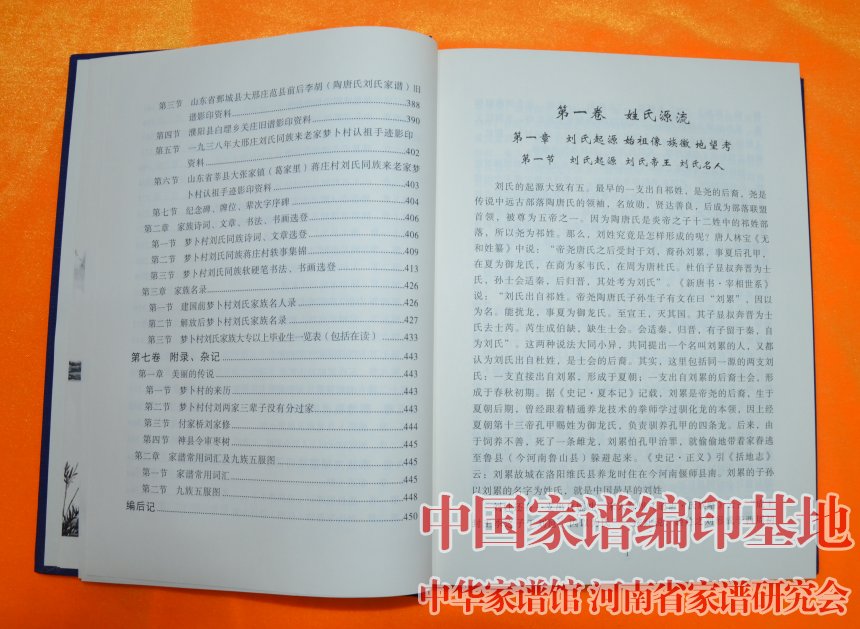 第三节 山东省鄄城县大邢庄范县前后李胡（陶唐氏刘氏家谱）旧
谱影印资料 388
第四节 濮阳县白堽乡关庄旧谱影印资料 390
第五节 一九三八年大邢庄刘氏同族来老家梦卜村认祖手迹影印
资料 402
第六节 山东省莘县大张家镇（葛家里）蒋庄村刘氏同族来老家梦
卜村认祖手迹影印资料 403
第七节 纪念碑、牌位、辈次字序碑 404
第二章 家族诗词、文章、书法、书画选登 409
第一节 梦卜村刘氏同族诗词、文章选登 409
第二节 梦卜村刘氏蒋庄村轶事集锦 411
第三节 梦卜村刘氏同族软硬笔书法、书画选登 413
第三章 家族名录 426
第一节 建国前梦卜村刘氏家族名人录 426
第二节 解放后梦卜村刘氏家族名录 427
第三节 梦卜村刘氏家族大专以上毕业生一览表（包括在读） 433
第七卷 附录、杂记 443
第一章 美丽的传说 443
第一节 梦卜村的来历 443
第二节 梦卜村付刘两家三辈子没有分过家 443
第三节 付家桥刘家修 444
第四节 神县令审枣树 445
第二章 家谱常用词汇及九族五服图 445
第一节 家谱常用词汇 445
第二节 九族五服图 448
编后记 450
第一卷 姓氏源流
第一章 刘氏起源 始祖像 族徽 地望考
第一节 刘氏起源 刘氏帝王 刘氏名人
刘氏的起源大致有五。最早的一支出自祁姓，是尧的后裔，尧是
传说中远古部落陶唐氏的领袖，名放勋，贤达善良，后成为部落联盟
首领，被尊为五帝之一。因为陶唐氏是炎帝之子十二姓中的祁姓部
落，所以尧为祁姓。那么，刘姓究竟是怎样形成的呢？唐人林宝《元
和姓纂》中说：“帝尧陶唐氏之后受封于刘，裔孙刘累，事夏后孔甲，
在夏为御龙氏，在商为豕韦氏，在周为唐杜氏。杜伯子隰叔奔晋为士
氏，孙士会适秦，后归晋，其处者为刘氏”。《新唐书·宰相世系》
说：“刘氏出自祁姓。帝尧陶唐氏子孙生子有文在日“刘累”，因以
为名。能扰龙，事夏为御龙氏。至宣王，灭其国。其子隰叔奔晋为士
氏去士芮。芮生成伯缺，缺生士会。会适秦，归晋，有子留于秦，自
为刘氏”。这两种说法大同小异，共同提出一个名叫刘累的人，又都
认为刘氏出自杜姓，是士会的后裔。其实，这里包括同一源的两支刘
氏：一支直接出自刘累，形成于夏朝；一支出自刘累的后裔士会，形
成于春秋初期。据《史记·夏本记》记载，刘累是帝尧的后裔，生于
夏朝后期，曾经跟着精通养龙技术的拳师学过驯化龙的本领，因上经
夏朝第十三帝孔甲赐姓为御龙氏，负责驯养孔甲的四条龙。后来，由
于饲养不善，死了一条雌龙，刘累怕孔甲治罪，就偷偷地带着家眷逃
至鲁县（今河南鲁山县）躲避起来。《史记·正义》引《括地志》
云：刘累故城在洛阳维氏县养龙时住在今河南偃师县南。刘累的子孙
以刘累的名字为姓氏，就是中国最早的刘姓。
中国家谱编印基地
中华家谱馆 河南省家谱研究会